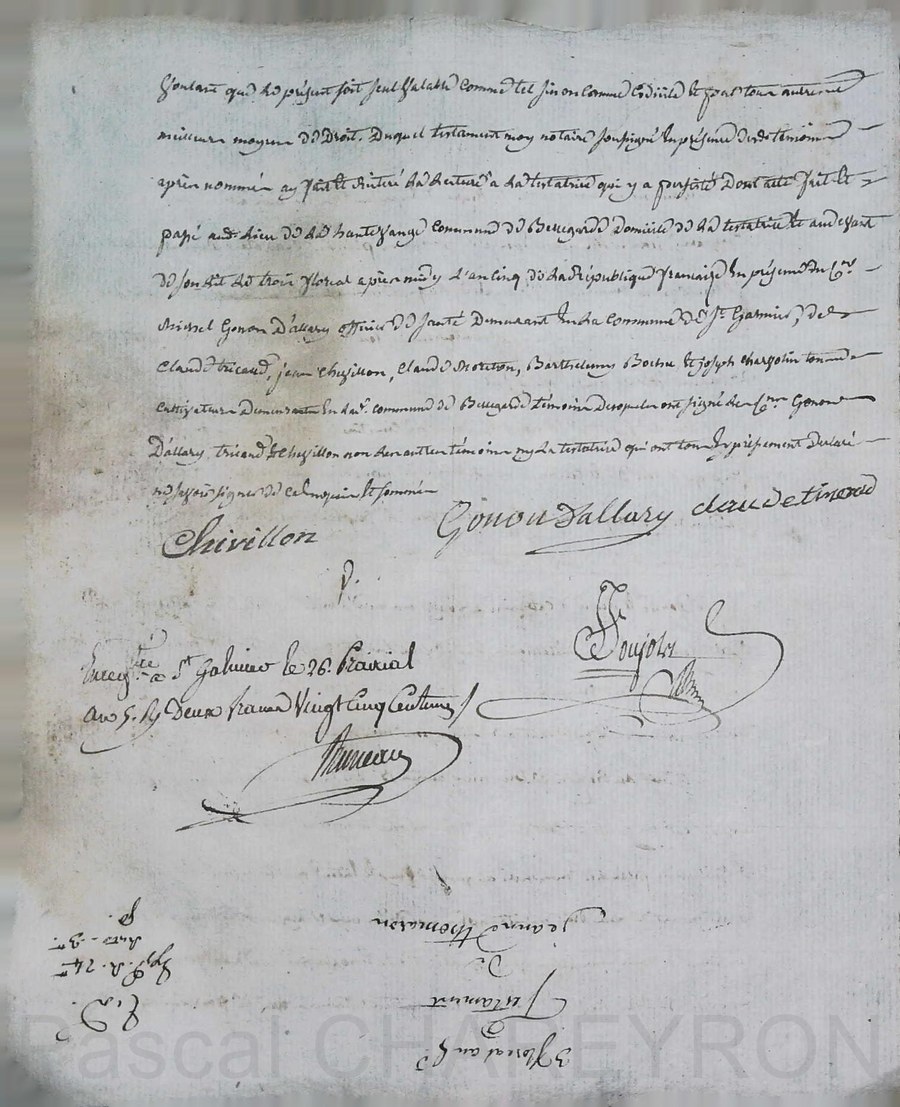 Voulant que le présent soit seul valable comme tel sinon comme codicile et pour tout autre
meilleur moyen de Droit. Duquel testament moy notaire soussigné en présence des témoins
après nommés ay fait et réitéré la lecture a la testatrice qui y a persisté Dont acte fait et
passé au lieu de la hante commune de Bellegarde Domicile de la testatrice et au devant
de son lit le trois floréal après midy L'an cinq de la République française en présence du
Michel Gonon D'allary officier de santé Demeurant en la commune de St Garmier, de
Claude tricaud, jean Chivillon, Claude Moreton, Barthelemy et joseph tous
cultivateurs Demeurants en lad. commune de Bellegarde témoins desquels ont signé le Gonon
D'allary, tricaud et Chivillon non les autres témoins ny la testatrice qui ont tous expressement déclaré
ne savoir signer de ce enquis et sommés
Chivillon Gonon D'allary claude
Enregtré a St Galmier le 26. Prairial
an 5. R/ Deux francs Vingt Cinq Centimes
3 floreal an 5e
Testament
De
jeanne thomason
Pascal CHAREYRON